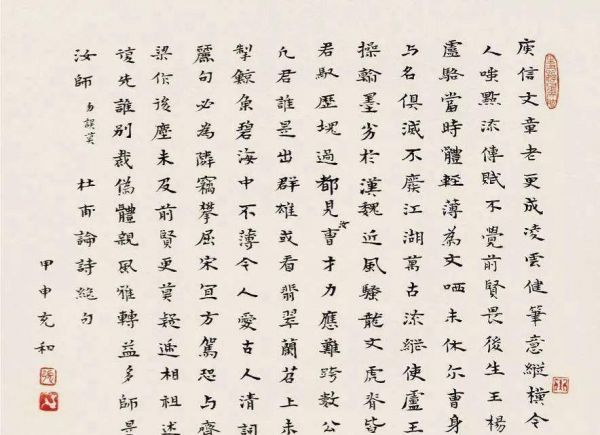 庾信文章老更成凌雲健筆意縱橫今
人嗤點流傳賦不覺前賢畏後生王楊
盧駱當時體輕薄為文哂未休尔曹身
与名俱滅不廢江湖萬古流縱使盧王
操翰墨劣於漢魏近風騷龍文虎脊皆
君馭歷塊過都見汝曹才力應難跨數公
凡君誰是出群雄或看翡翠蘭苕上未
掣鯨魚碧海中不薄今人愛古人清詞
麗句必為隣竊攀屈宋宜方駕恐与齊
梁作後塵未及前賢更莫疑遞相祖述
復先誰別裁偽體親風雅轉益多師是
汝師 勿誤莫 杜甫論詩絕句
甲申充和
張